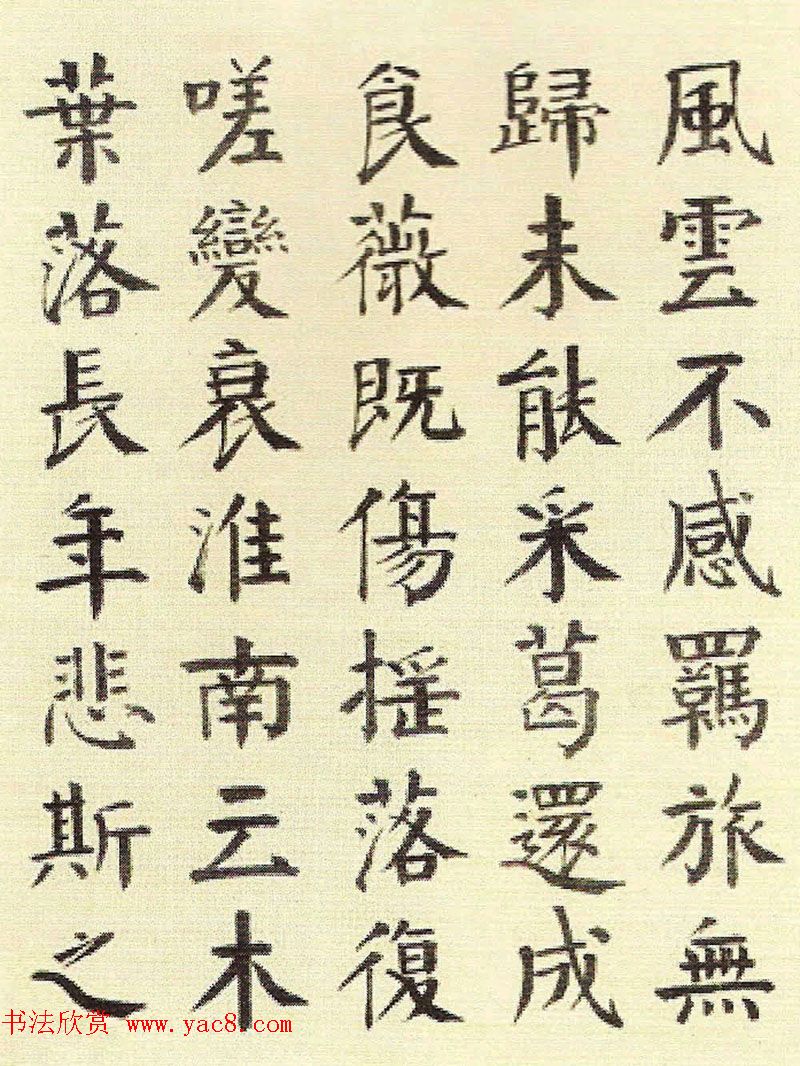 風雲不感羈旅無
歸未能采葛還成
食薇既傷搖落復
嗟變衰淮南云木
葉落長年悲斯之
书法欣赏 www.yac8.com